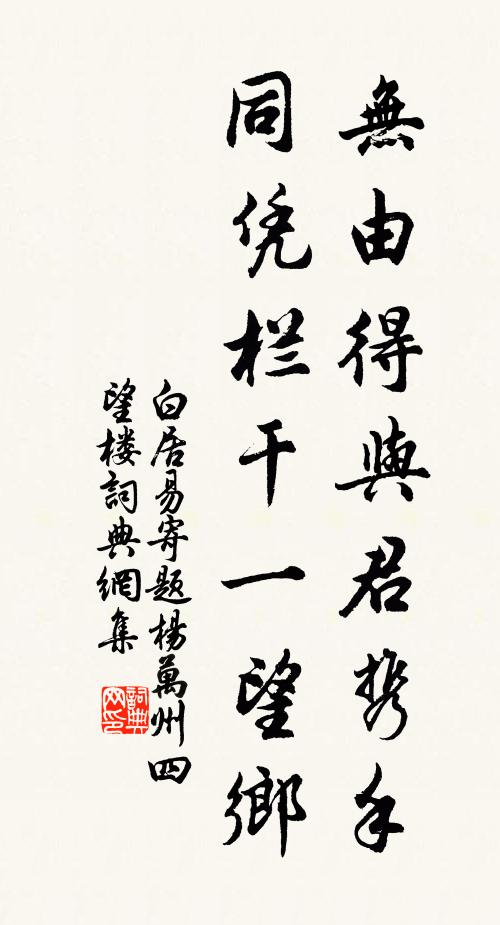 無由得與君携手
同凭栏干一望鄉
白居易寄题楊萬州四
望楼詞典網集
詞典网印